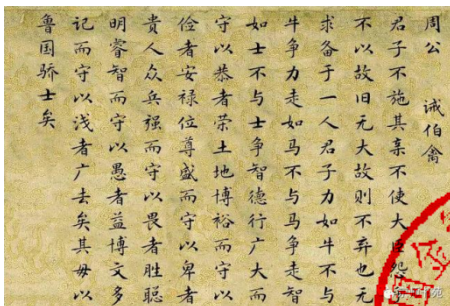 周公 诫伯禽
君子不施其亲不使大臣怨
不以故旧无大故则不弃也无
求备于一人君子力如牛不与
牛争力走如马不与马争走智
如士不与士争智德行广大而
守以恭者荣土地博裕而守以
俭者安禄位尊盛而守以卑者
贵人众兵强而守以畏者胜聪
明睿智而守以愚者益博文多
记而守以浅者广去矣其毋以
鲁国骄士矣